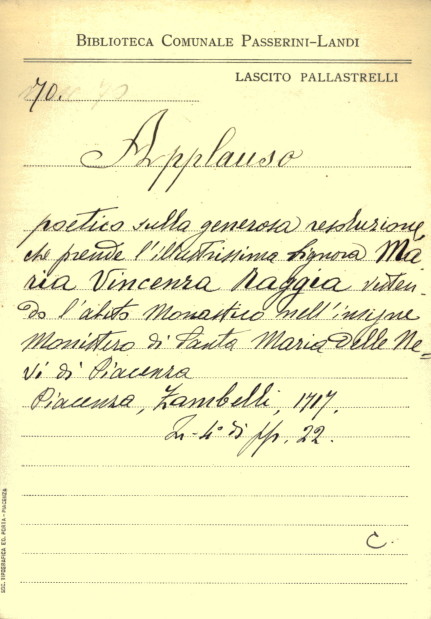 BIBLIOTECA COMUNALE PASSERINI-LANDI
LASCITO PALLASTRELLI
70.
Applauso
poetico sulla generosa resoluzione
che prende l'illustrissima signora Ma
ria Vincenza Raggia vesten-
do l'abito Monastico nell'insigne
Monistero di Santa Maria delle Ne-
vi di Piacenza
Piacenza, Zambelli, 1717.
In-4° di pp. 22.
C.
SOC. TIPOGRAFICA ED. PORTA - PIACENZA